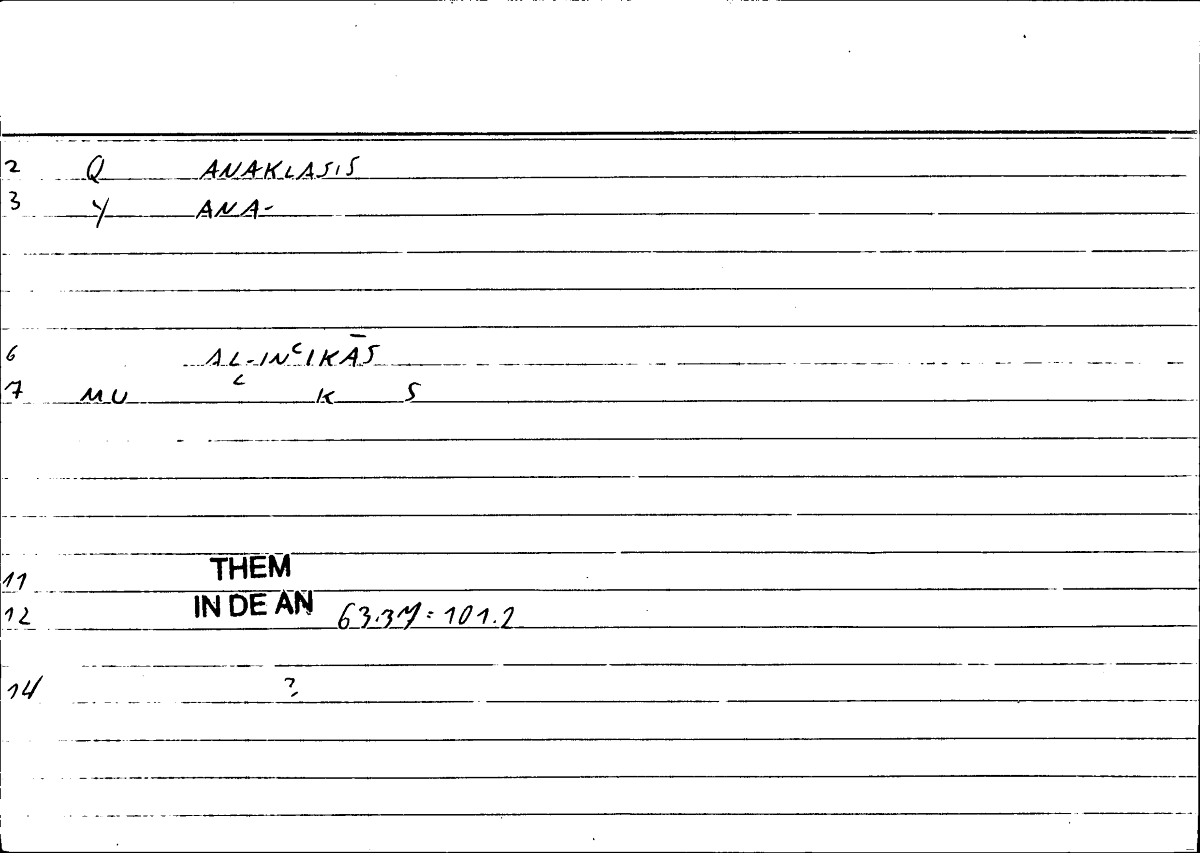 2 Q ANAKLASIS
3 Y ANA-
6 AL-INᶜIKĀS
7 MU ᶜ K S
11 THEM
12 IN DE AN 63.37 = 101.2
14 ?